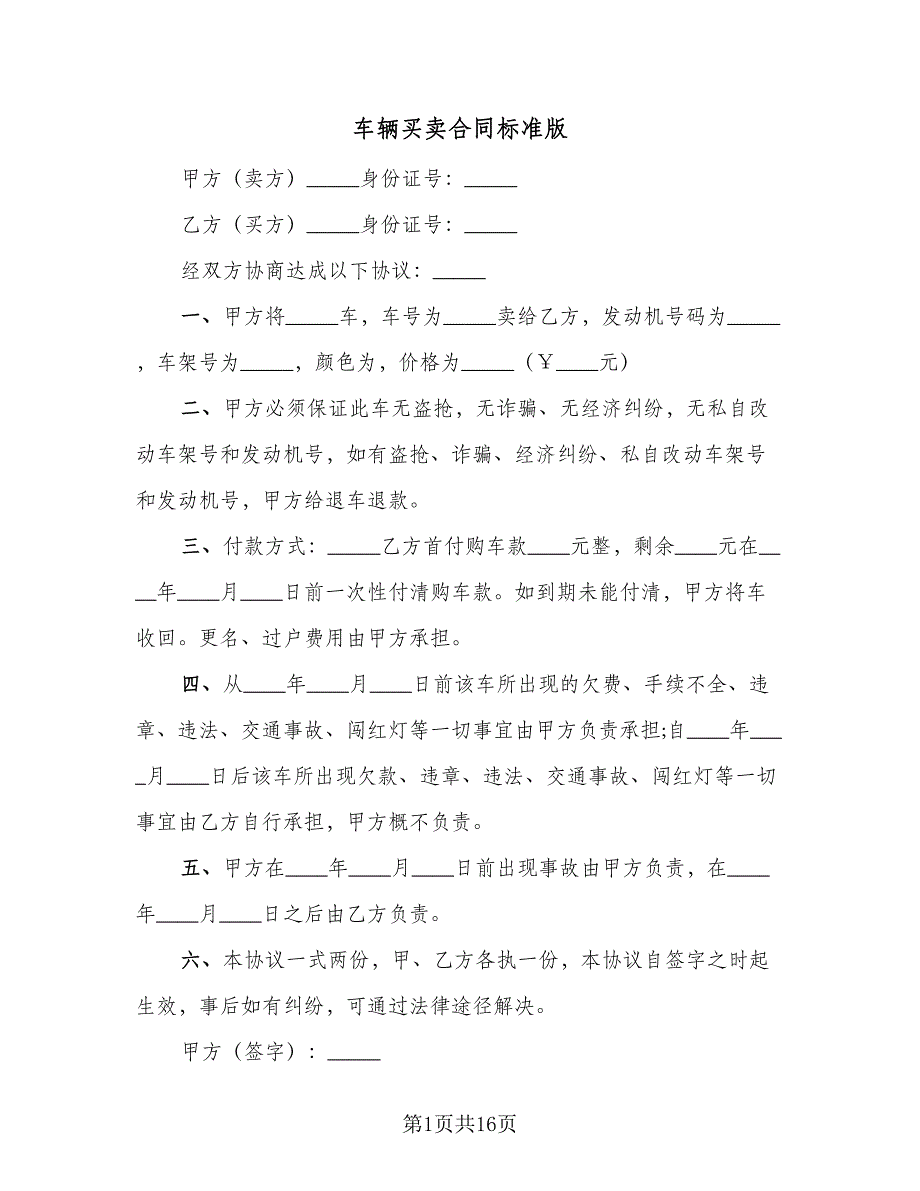 车辆买卖合同标准版
甲方（卖方）_____身份证号：_____
乙方（买方）_____身份证号：_____
经双方协商达成以下协议：_____
一、甲方将_____车，车号为_____卖给乙方，发动机号码为_____
，车架号为_____，颜色为，价格为_____（￥____元）
二、甲方必须保证此车无盗抢，无诈骗、无经济纠纷，无私自改
动车架号和发动机号，如有盗抢、诈骗、经济纠纷、私自改动车架号
和发动机号，甲方给退车退款。
三、付款方式：_____乙方首付购车款____元整，剩余____元在__
__年____月____日前一次性付清购车款。如到期未能付清，甲方将车
收回。更名、过户费用由甲方承担。
四、从____年____月____日前该车所出现的欠费、手续不全、违
章、违法、交通事故、闯红灯等一切事宜由甲方负责承担;自____年___
_月____日后该车所出现欠款、违章、违法、交通事故、闯红灯等一切
事宜由乙方自行承担，甲方概不负责。
五、甲方在____年____月____日前出现事故由甲方负责，在____
年____月____日之后由乙方负责。
六、本协议一式两份，甲、乙方各执一份，本协议自签字之时起
生效，事后如有纠纷，可通过法律途径解决。
甲方（签字）：_____
第1页共16页